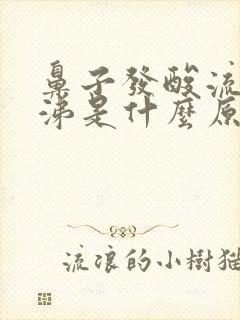 鼻子發酸流
涕是什麼原
流浪的小樹猫